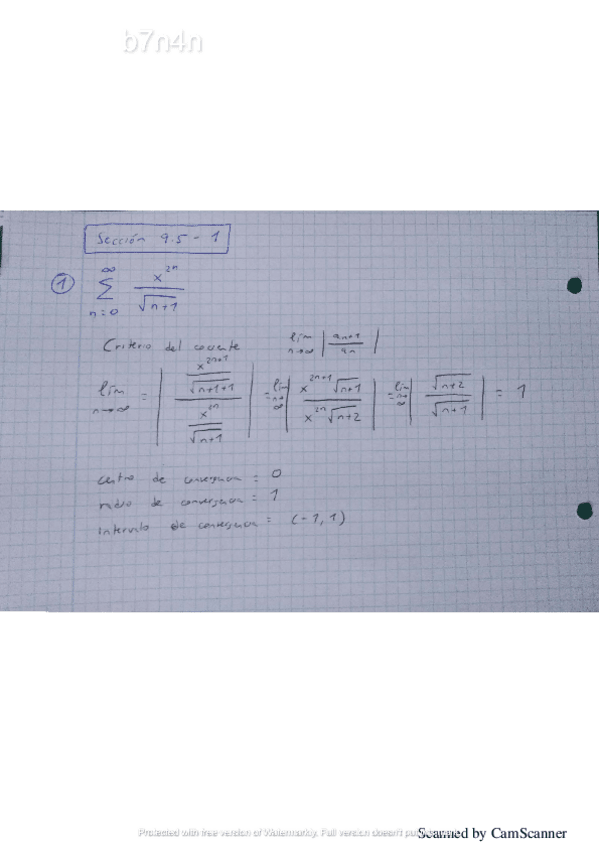 b7n4n
Sección 9.5 - 1
① ∞ Σ n=0 x^2n / √n+1
Criterio del lim n→∞ | an+1 / an |
lim n→∞ = | x^2n+1 / √n+1+1 / x^2n / √n+1 | = lim n→∞ | x^2n+1 √n+1 / x^2n √n+2 | = lim n→∞ | √n+2 / √n+1 | = 1
centro de convergencia = 0
radio de convergencia = 1
intervalo de convergencia = (-1, 1)
Protected with free version of Watermarkly. Full version doesn't put
Scanned by CamScanner